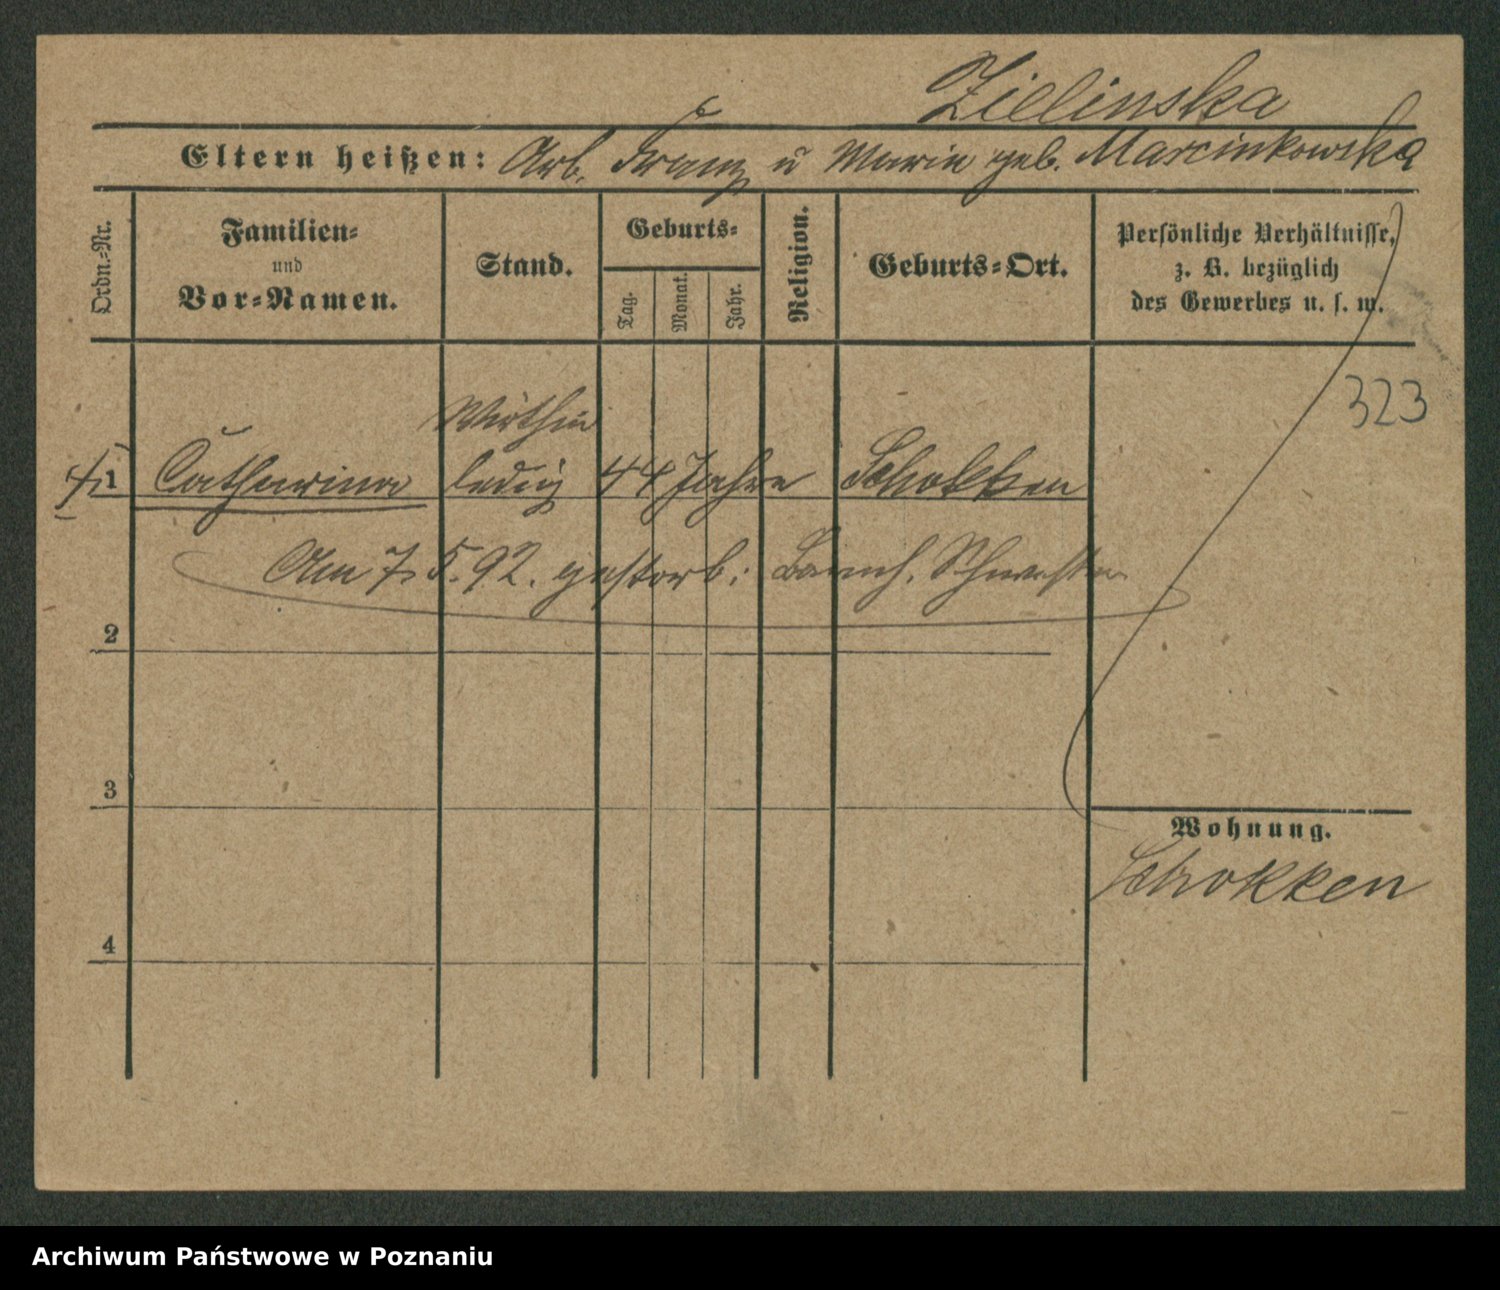 Zielinska
Eltern heißen: Arb. Franz u Marie geb. Marcinkowska
Ordn.-Nr.
Familien- und Vor-Namen.
Stand.
Geburts-
Tag.
Monat.
Jahr.
Religion.
Geburts-Ort.
Persönliche Verhältnisse,
z. B. bezüglich
des Gewerbes u. s. w.
323
Wirthin
1 Catharina ledig 44 Jahre Schokken
Am 7. 5. 92. gestorb: Barmh. Schwester
2
3
Wohnung.
Schokken
4
Archiwum Państwowe w Poznaniu